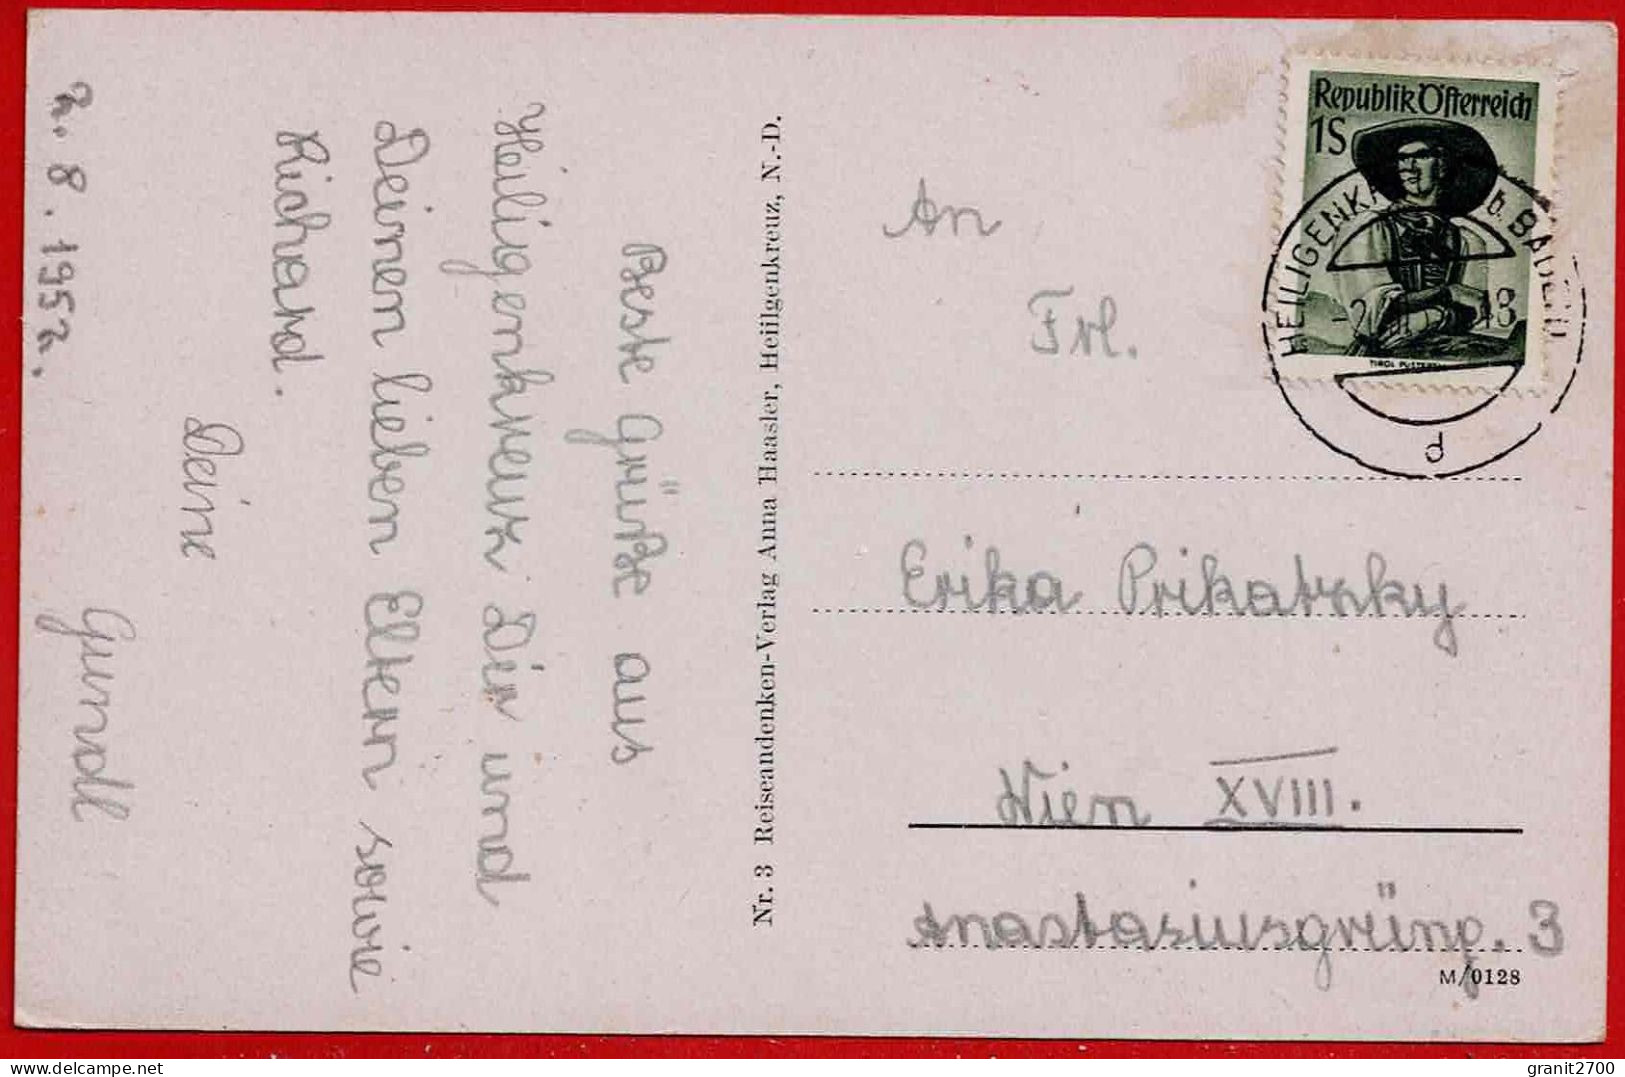 2. 8. 1952.
Beste Grüße aus
Heiligenkreuz Dir und
Deinen lieben Eltern sowie
Richard.
Deine
Gundl
Nr. 3 Reiseandenken-Verlag Anna Haasler, Heiilgenkreuz, N.-D.
Republik Österreich
1S
HEILIGENK b. BADEN
18
d
An
Frl.
Erika Prikatzky
Wien XVIII.
Anastasiusgrüng. 3
M/0128
granit2700